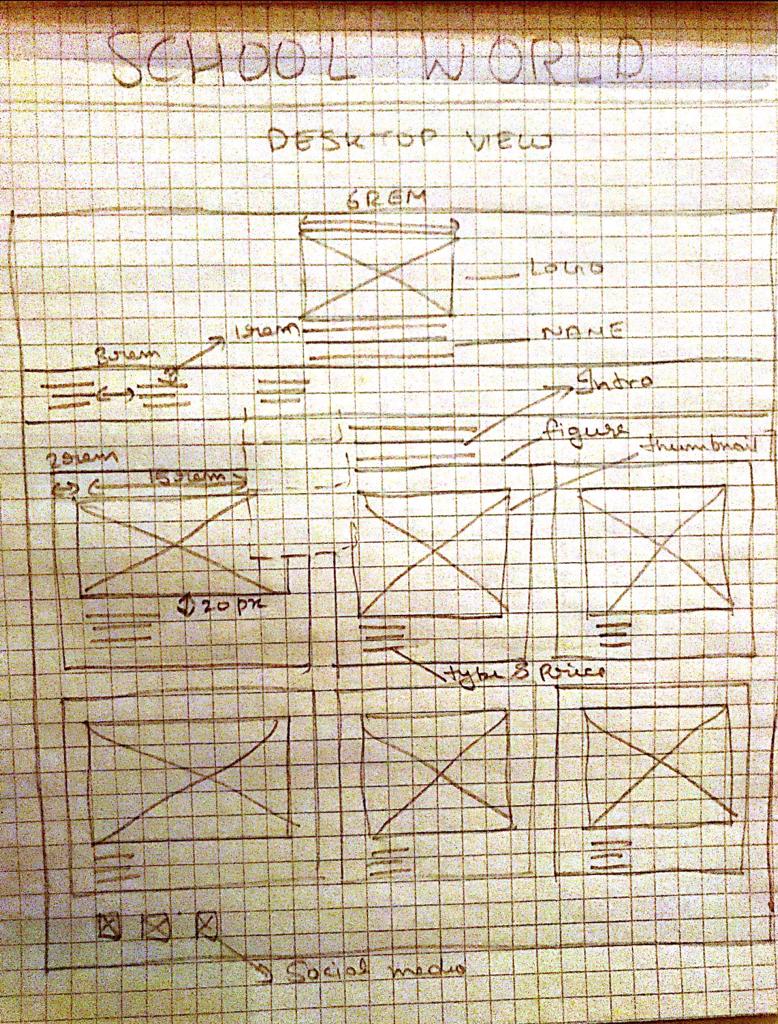 SCHOOL WORLD
DESKTOP VIEW
6REM
LOGO
NAME
1rem
3rem
Intro
figure
thumbnail
20rem
15rem
20px
type & Price
Social media